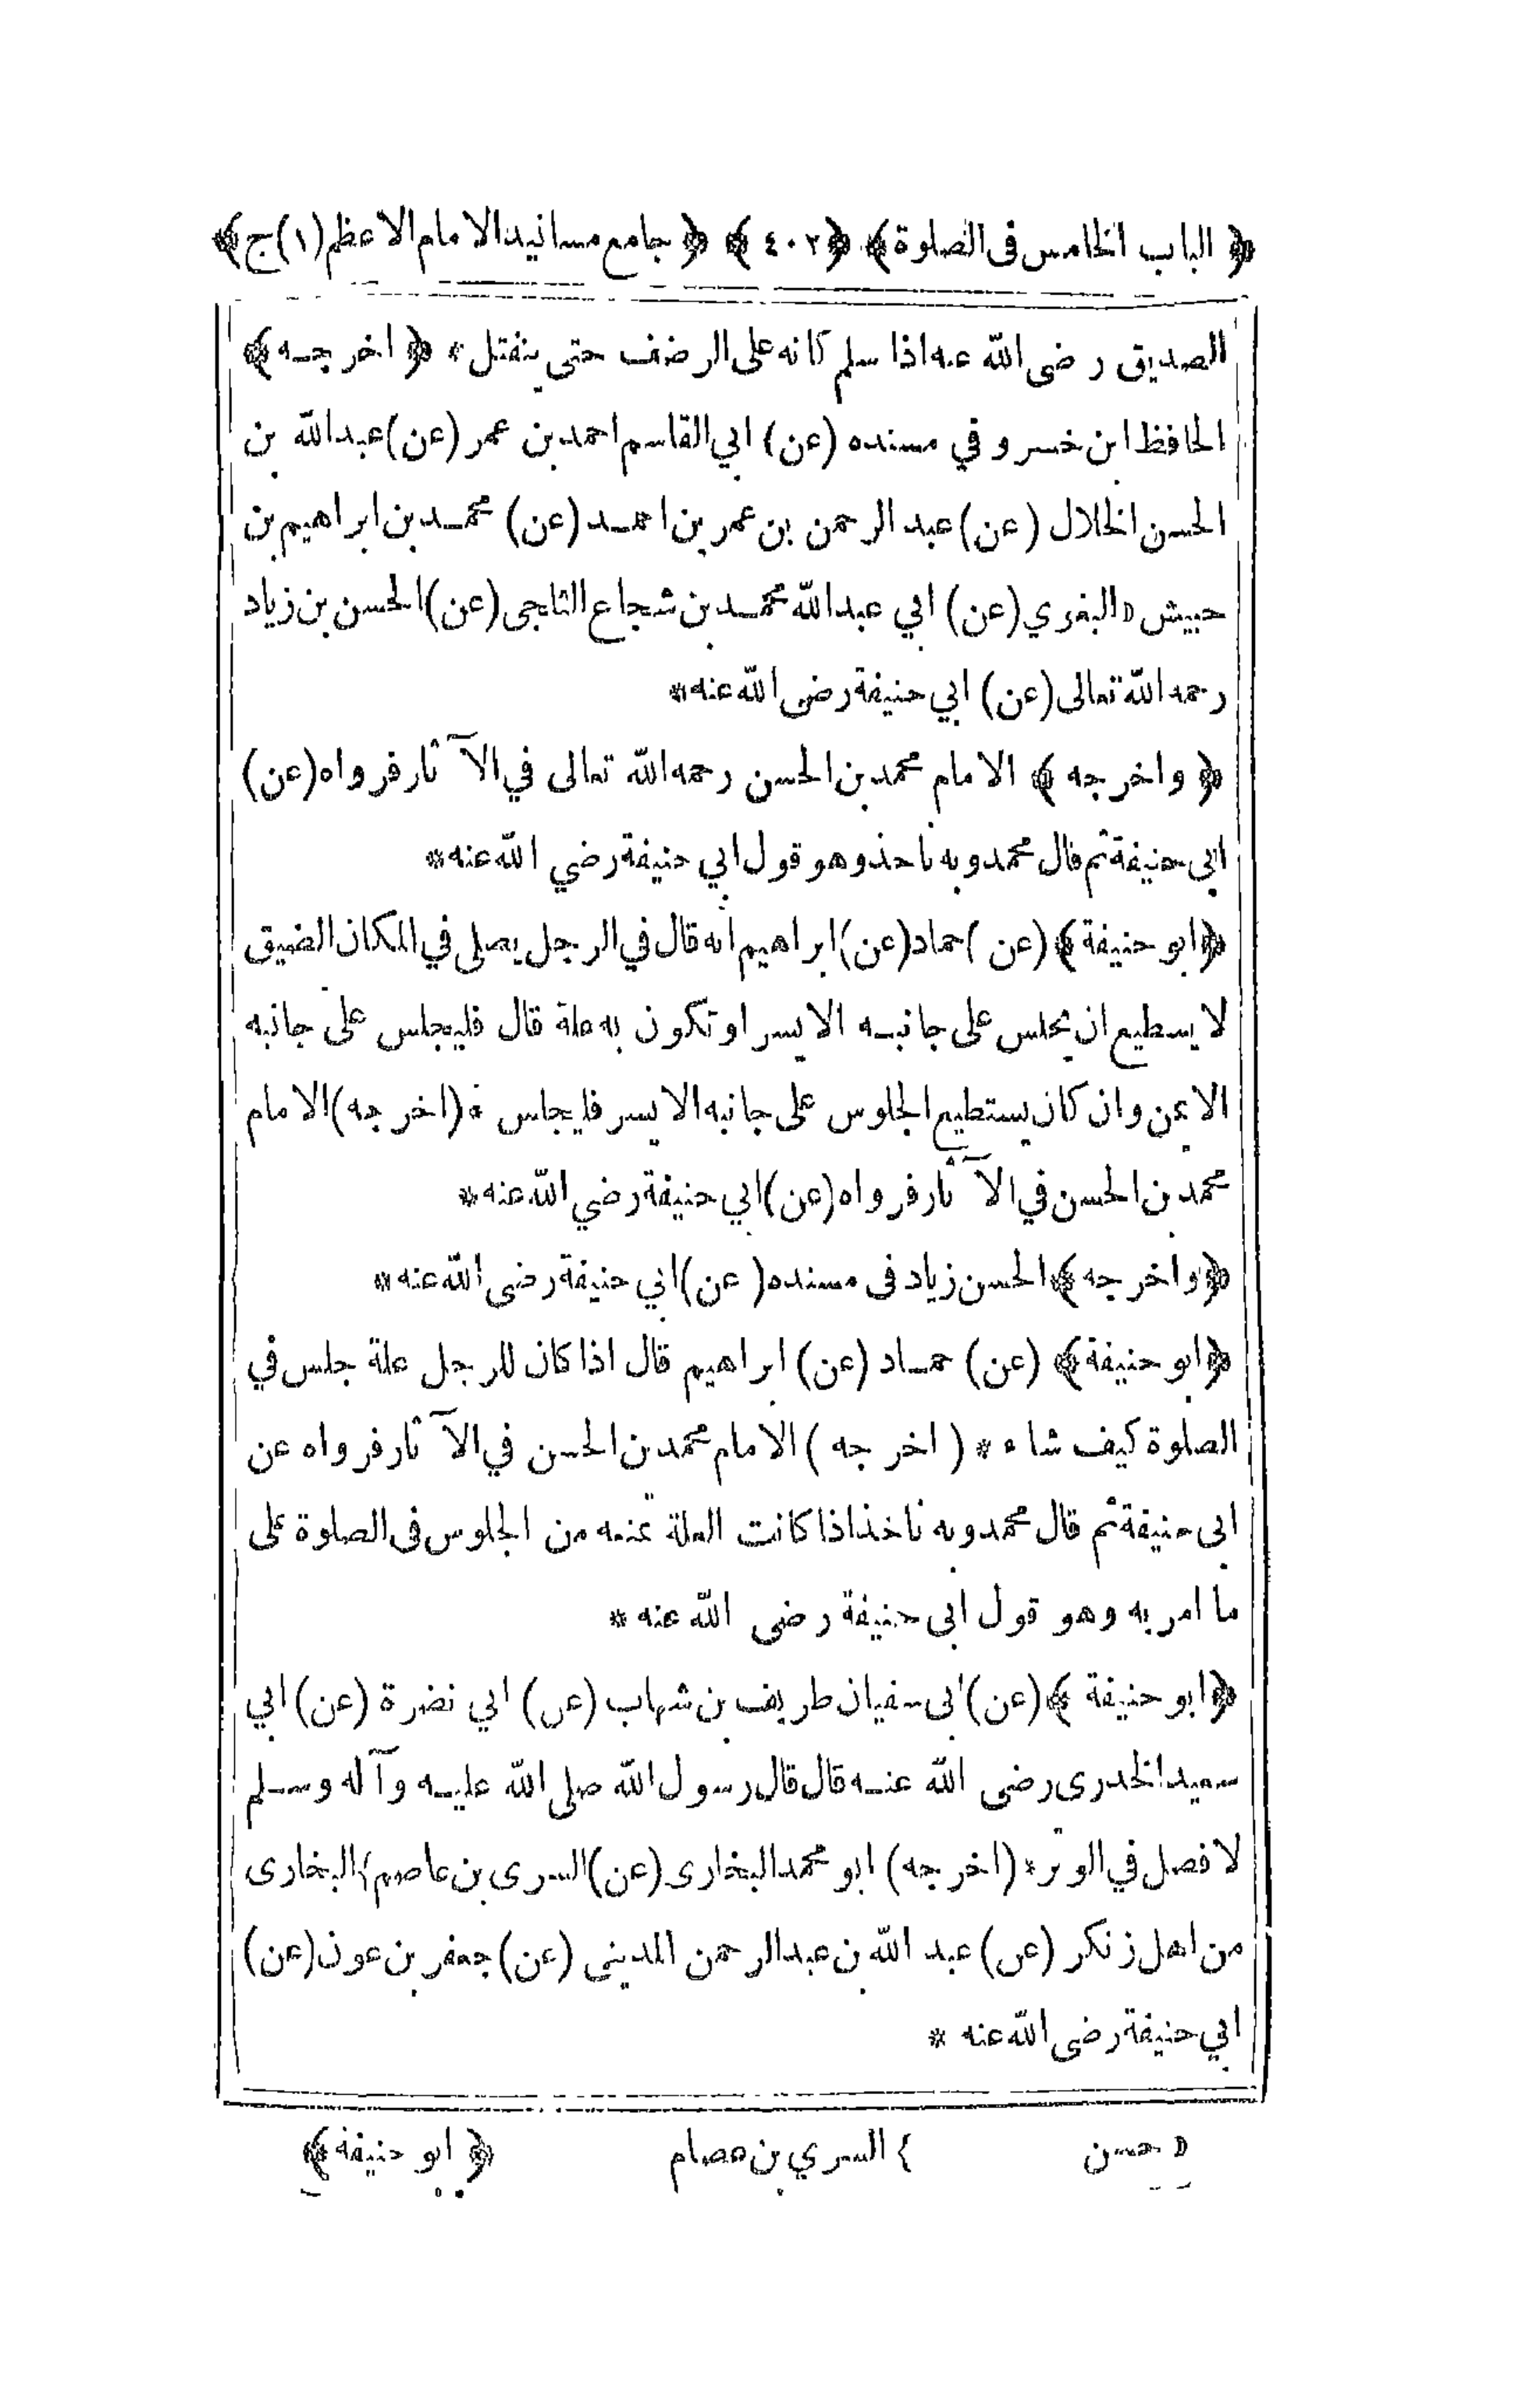 ﴿ الباب الخامس فى الصلوة ﴾ ﴿ ٤٠٢ ﴾ ﴿ جامع مسانيد الامام الاعظم (١) ج ﴾
الصديق رضى الله عنه اذا سلم كانه على الرضف حتى ينفتل * ﴿ اخرجه ﴾
الحافظ ابن خسرو في مسنده (عن) ابي القاسم احمد بن عمر (عن) عبدالله بن
الحسن الخلال (عن) عبد الرحمن بن عمر بن احمد (عن) محمد بن ابراهيم بن
حبيش البغوي (عن) ابي عبدالله محمد بن شجاع الثلجى (عن) الحسن بن زياد
رحمه الله تعالى (عن) ابي حنيفة رضى الله عنه *
﴿ واخرجه ﴾ الامام محمد بن الحسن رحمه الله تعالى في الآثار فرواه (عن)
ابى حنيفة ثم قال محمد وبه ناخذ وهو قول ابي حنيفة رضي الله عنه *
﴿ ابو حنيفة ﴾ (عن) حماد (عن) ابراهيم انه قال في الرجل يصلى في المكان الضيق
لا يسطيع ان يجلس على جانبه الايسر او تكون به علة قال فليجلس على جانبه
الايمن وان كان يستطيع الجلوس على جانبه الايسر فليجلس * (اخرجه) الامام
محمد بن الحسن في الآثار فرواه (عن) ابي حنيفة رضي الله عنه *
﴿ واخرجه ﴾ الحسن زياد فى مسنده (عن) ابي حنيفة رضى الله عنه *
﴿ ابو حنيفة ﴾ (عن) حماد (عن) ابراهيم قال اذا كان للرجل علة جلس في
الصلوة كيف شاء * (اخرجه) الامام محمد بن الحسن في الآثار فرواه عن
ابى حنيفة ثم قال محمد وبه ناخذ اذا كانت العلة تمنعه من الجلوس فى الصلوة على
ما امر به وهو قول ابى حنيفة رضى الله عنه *
﴿ ابو حنيفة ﴾ (عن) ابى سفيان طريف بن شهاب (عن) ابي نضرة (عن) ابي
سعيد الخدرى رضى الله عنه قال قال رسول الله صلى الله عليه وآله وسلم
لا فصل في الوتر * (اخرجه) ابو محمد البخارى (عن) السرى بن عاصم } البخارى
من اهل زنكر (عن) عبد الله بن عبدالرحمن المدينى (عن) جعفر بن عون (عن)
ابي حنيفة رضى الله عنه *
حسن } السري بن عصام ﴿ ابو حنيفة ﴾